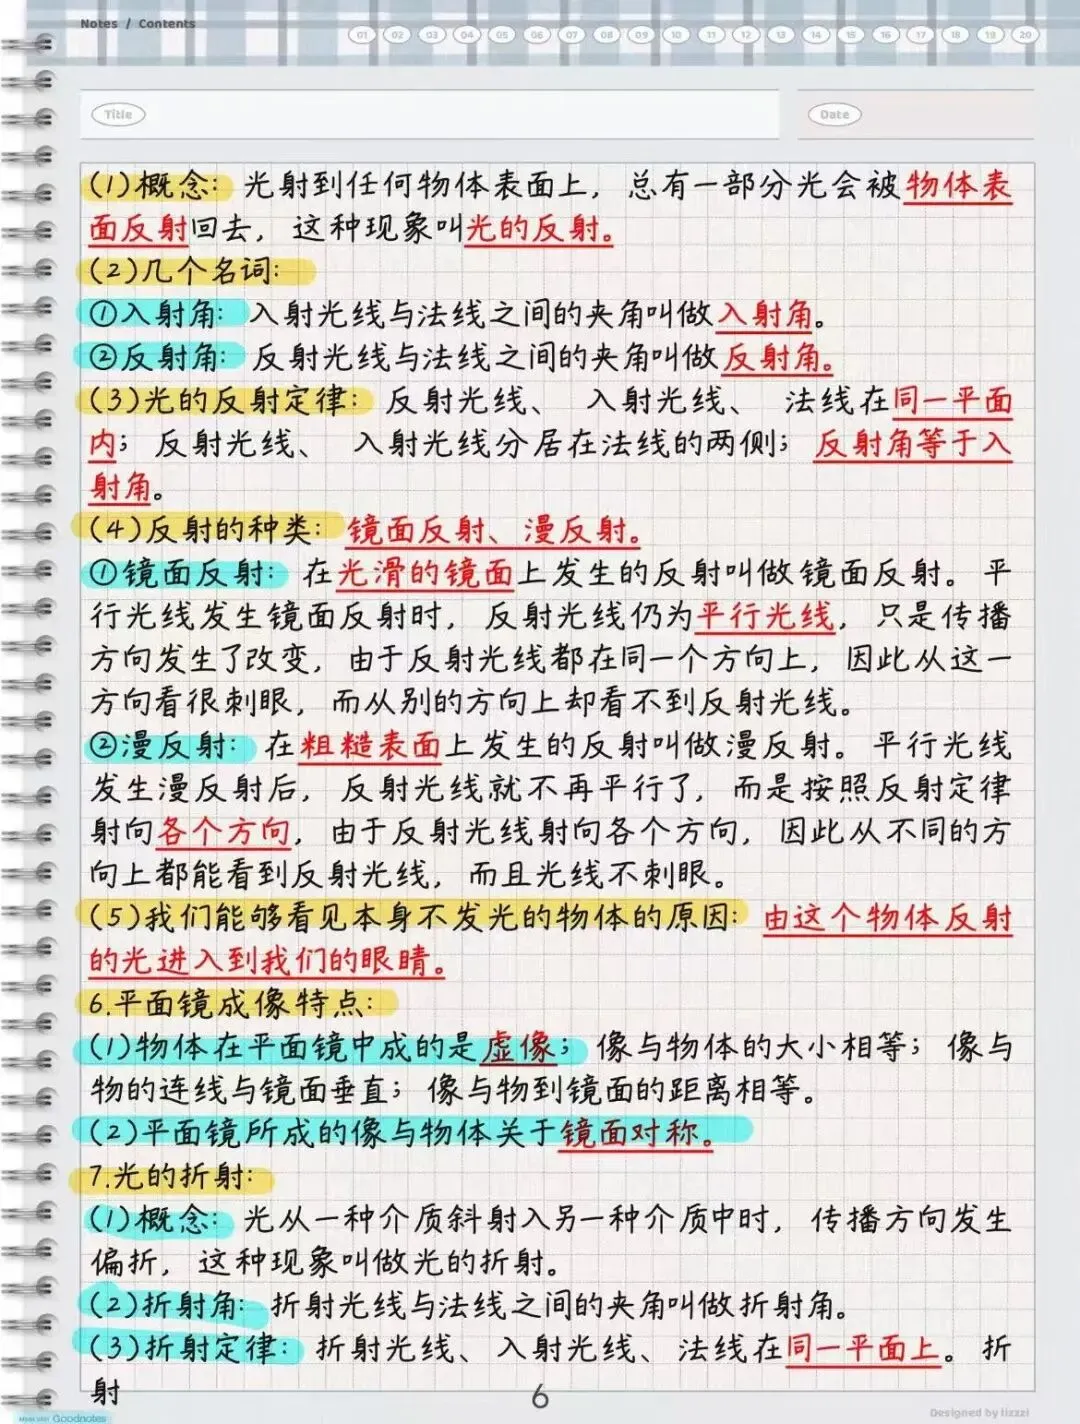 Notes / Contents
01 02 03 04 05 06 07 08 09 10 11 12 13 14 15 16 17 18 19 20
Title
Date
(1)概念：光射到任何物体表面上，总有一部分光会被物体表
面反射回去，这种现象叫光的反射。
(2)几个名词：
①入射角：入射光线与法线之间的夹角叫做入射角。
②反射角：反射光线与法线之间的夹角叫做反射角。
(3)光的反射定律：反射光线、 入射光线、 法线在同一平面
内；反射光线、 入射光线分居在法线的两侧；反射角等于入
射角。
(4)反射的种类：镜面反射、漫反射。
①镜面反射：在光滑的镜面上发生的反射叫做镜面反射。平
行光线发生镜面反射时，反射光线仍为平行光线，只是传播
方向发生了改变，由于反射光线都在同一个方向上，因此从这一
方向看很刺眼，而从别的方向上却看不到反射光线。
②漫反射：在粗糙表面上发生的反射叫做漫反射。平行光线
发生漫反射后，反射光线就不再平行了，而是按照反射定律
射向各个方向，由于反射光线射向各个方向，因此从不同的方
向上都能看到反射光线，而且光线不刺眼。
(5)我们能够看见本身不发光的物体的原因：由这个物体反射
的光进入到我们的眼睛。
6.平面镜成像特点：
(1)物体在平面镜中成的是虚像；像与物体的大小相等；像与
物的连线与镜面垂直；像与物到镜面的距离相等。
(2)平面镜所成的像与物体关于镜面对称。
7.光的折射：
(1)概念：光从一种介质斜射入另一种介质中时，传播方向发生
偏折，这种现象叫做光的折射。
(2)折射角：折射光线与法线之间的夹角叫做折射角。
(3)折射定律：折射光线、入射光线、法线在同一平面上。折
射
6
Made with Goodnotes
Designed by lizzzi